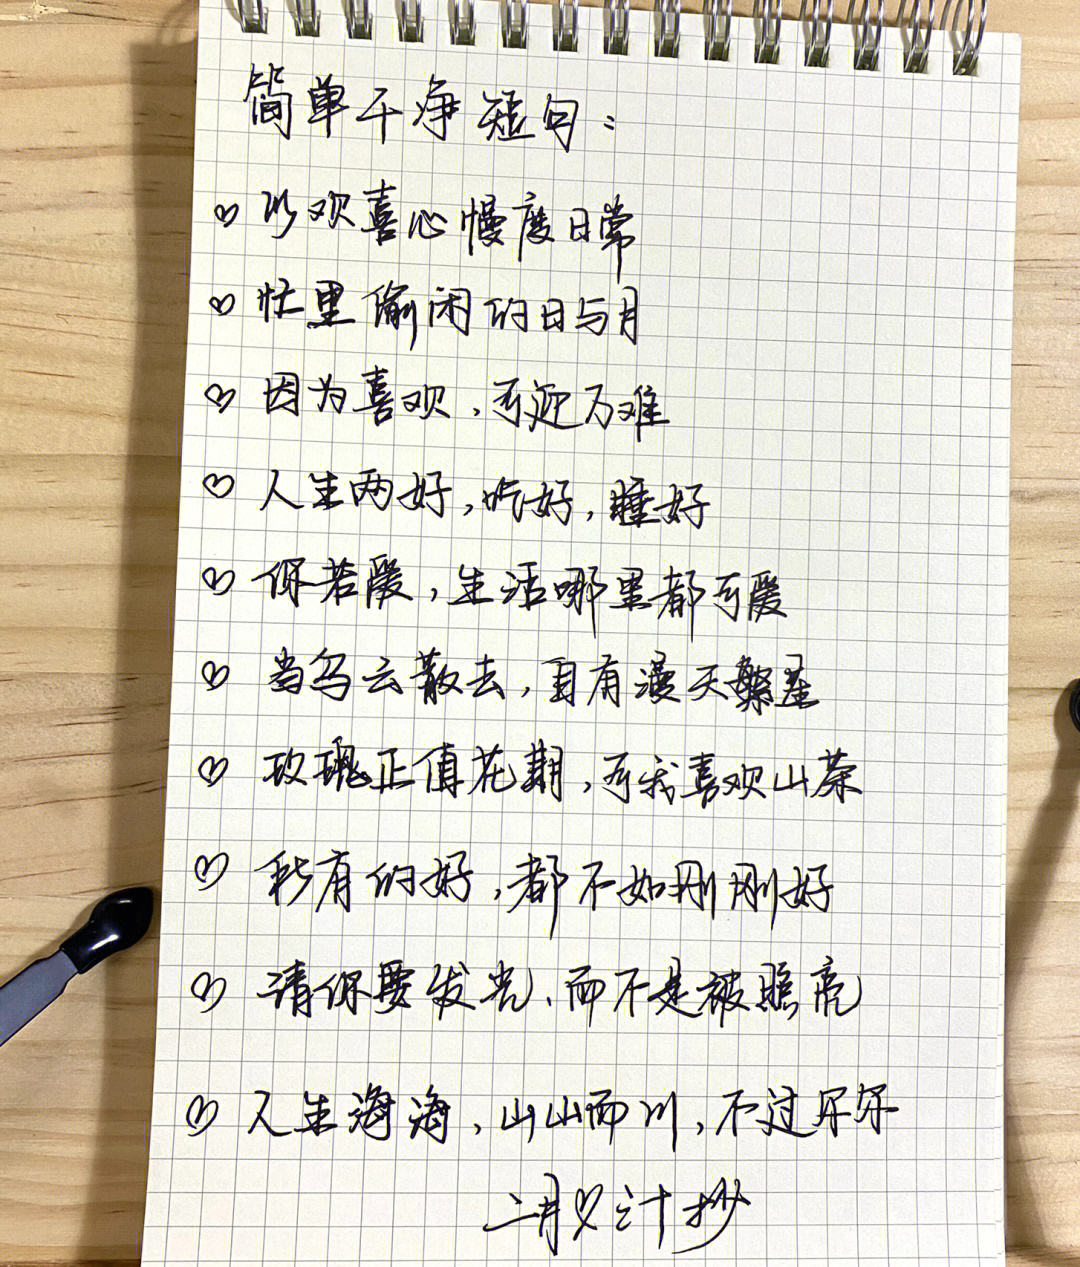 简单干净短句：
以欢喜心慢度日常
忙里偷闲的日与月
因为喜欢，可迎万难
人生两好，吃好，睡好
你若爱，生活哪里都可爱
当乌云散去，自有漫天繁星
玫瑰正值花期，可我喜欢山茶
所有的好，都不如刚刚好
请你要发光、而不是被照亮
人生海海，山山而川，不过尔尔
二月 计抄